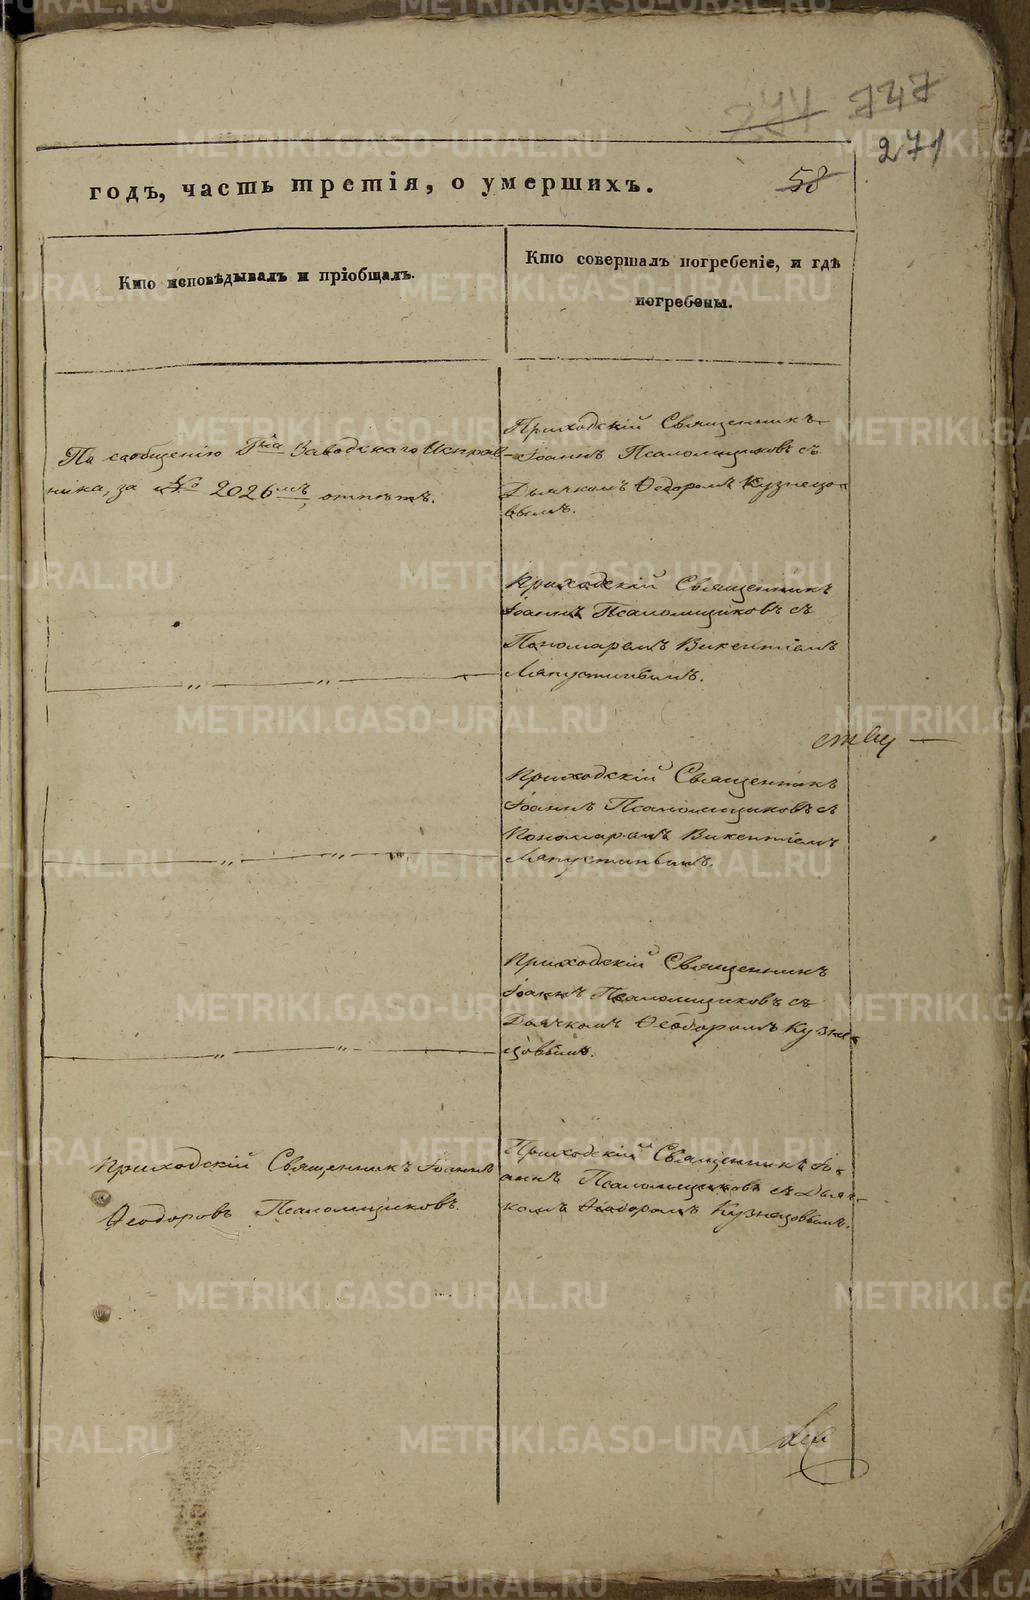 271 747
271
годъ, часть третія, о умершихъ. 58
Кто исповѣдывалъ и пріобщалъ.
Кто совершалъ погребеніе, и гдѣ
погребены.
По сообщенію Гна Заводскаго Исправ-
ника, за № 2026мъ, отпѣтъ.
Приходскій Священникъ
Іоаннъ Псаломщиковъ съ
Дьячкомъ Ѳедоромъ Кузнецо-
вымъ.
Приходскій Священникъ
Іоаннъ Псаломщиковъ съ
Пономаремъ Викентіемъ
Ляпустинымъ.
— „ — „ —
ству —
Приходскій Священникъ
Іоаннъ Псаломщиковъ съ
Пономаремъ Викентіемъ
Ляпустинымъ.
— „ — „ —
Приходскій Священникъ
Іоаннъ Псаломщиковъ съ
Дьячкомъ Ѳеодоромъ Кузне-
цовымъ.
— „ — „ —
Приходскій Священникъ Іоаннъ
Ѳеодоровъ Псаломщиковъ.
Приходскій Священникъ Іо-
аннъ Псаломщиковъ съ Дьяч-
комъ Ѳеодоромъ Кузнецовымъ.
METRIKI.GASO-URAL.RU